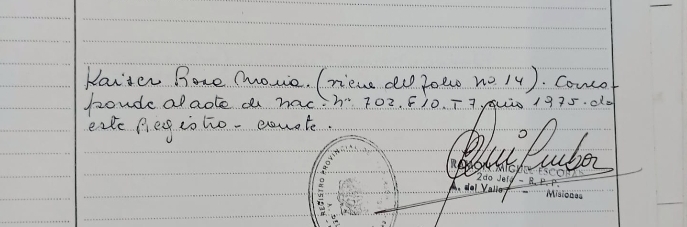 Kaiser Rosa Maria. (viene del folio nº 14). Corres-
ponde al acta de nac. nº 702. F 10. T 7, año 1975. de
este Registro - conste.
REGISTRO PROVINCIAL
RAMON MIGUEL ESCOBAR
2do Jefe - R.P.P.
A. del Valle - Misiones